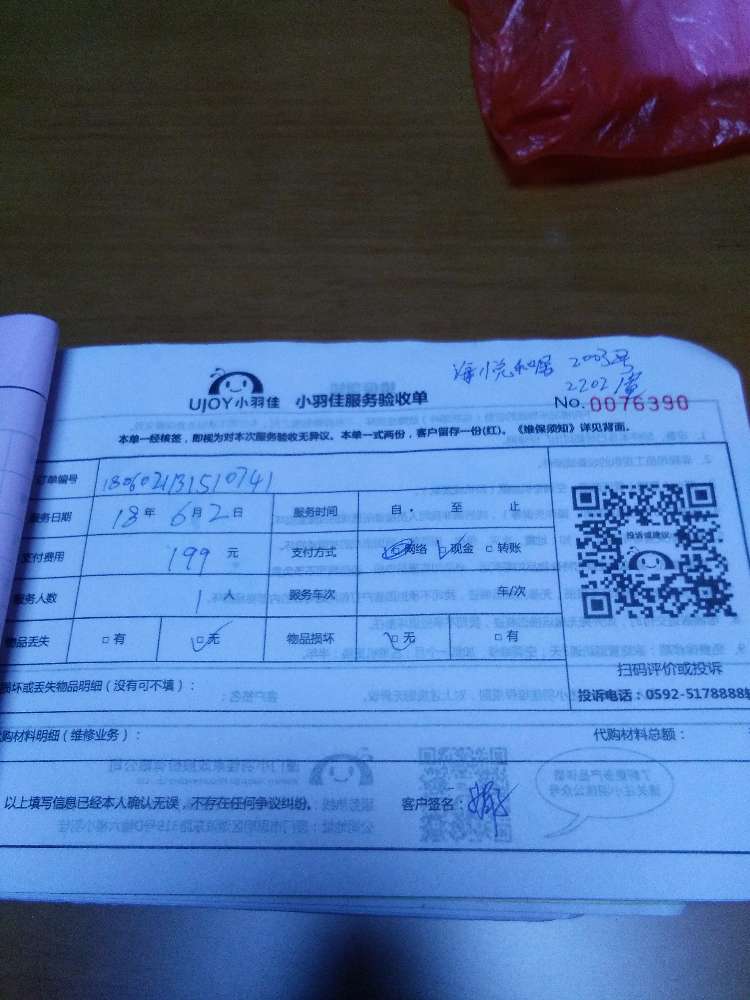 2003号
2202室
UJOY小羽佳 小羽佳服务验收单
No.0076390
本单一经核签，即视为对本次服务验收无异议。本单一式两份，客户留存一份(红)。《维保须知》详见背面。
订单编号 180602131510741
服务日期 18年 6月 2日 服务时间 自 · 至 止
支付费用 199 元 支付方式 □网络 □现金 □转账
服务人数 1 人 服务车次 车/次
物品丢失 □有 □无 物品损坏 □无 □有
投诉或建议
扫码评价或投诉
损坏或丢失物品明细（没有可不填）：
投诉电话：0592-5178888
代购材料明细（维修业务）： 代购材料总额：
以上填写信息已经本人确认无误，不存在任何争议纠纷。 客户签名：